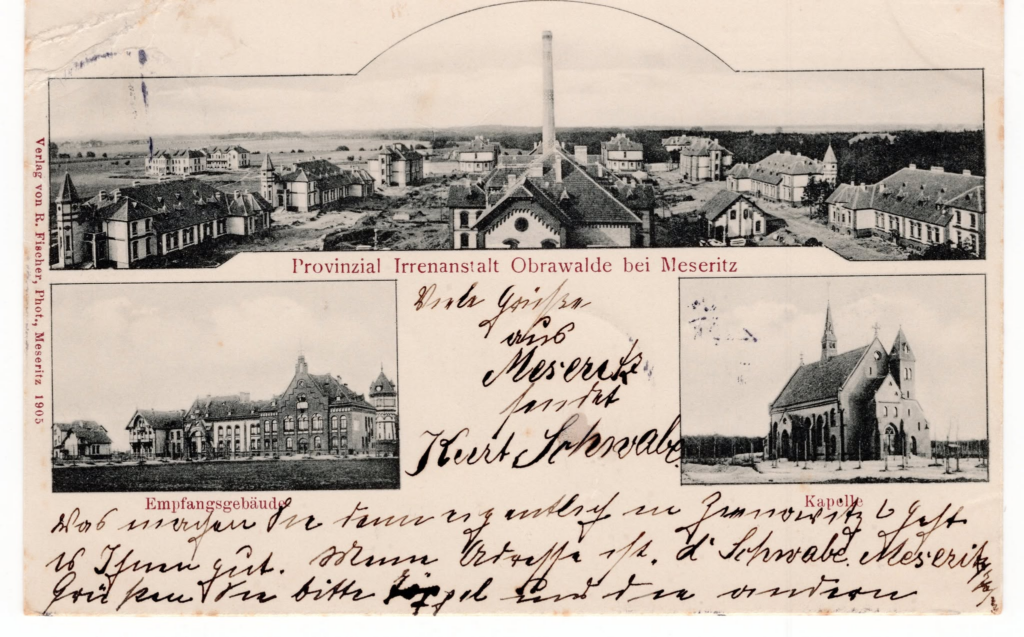 Verlag von R. Fischer, Phot., Meseritz 1905
Provinzial Irrenanstalt Obrawalde bei Meseritz
Viele Grüße
aus
Meseritz
sendet
Kurt Schwabe
Empfangsgebäude
Kapelle
Was machen Sie denn eigentlich in Zinnowitz? Geht
es Ihnen gut. Meine Adresse ist. Schwabe. Meseritz
Grüßen Sie bitte und die andern